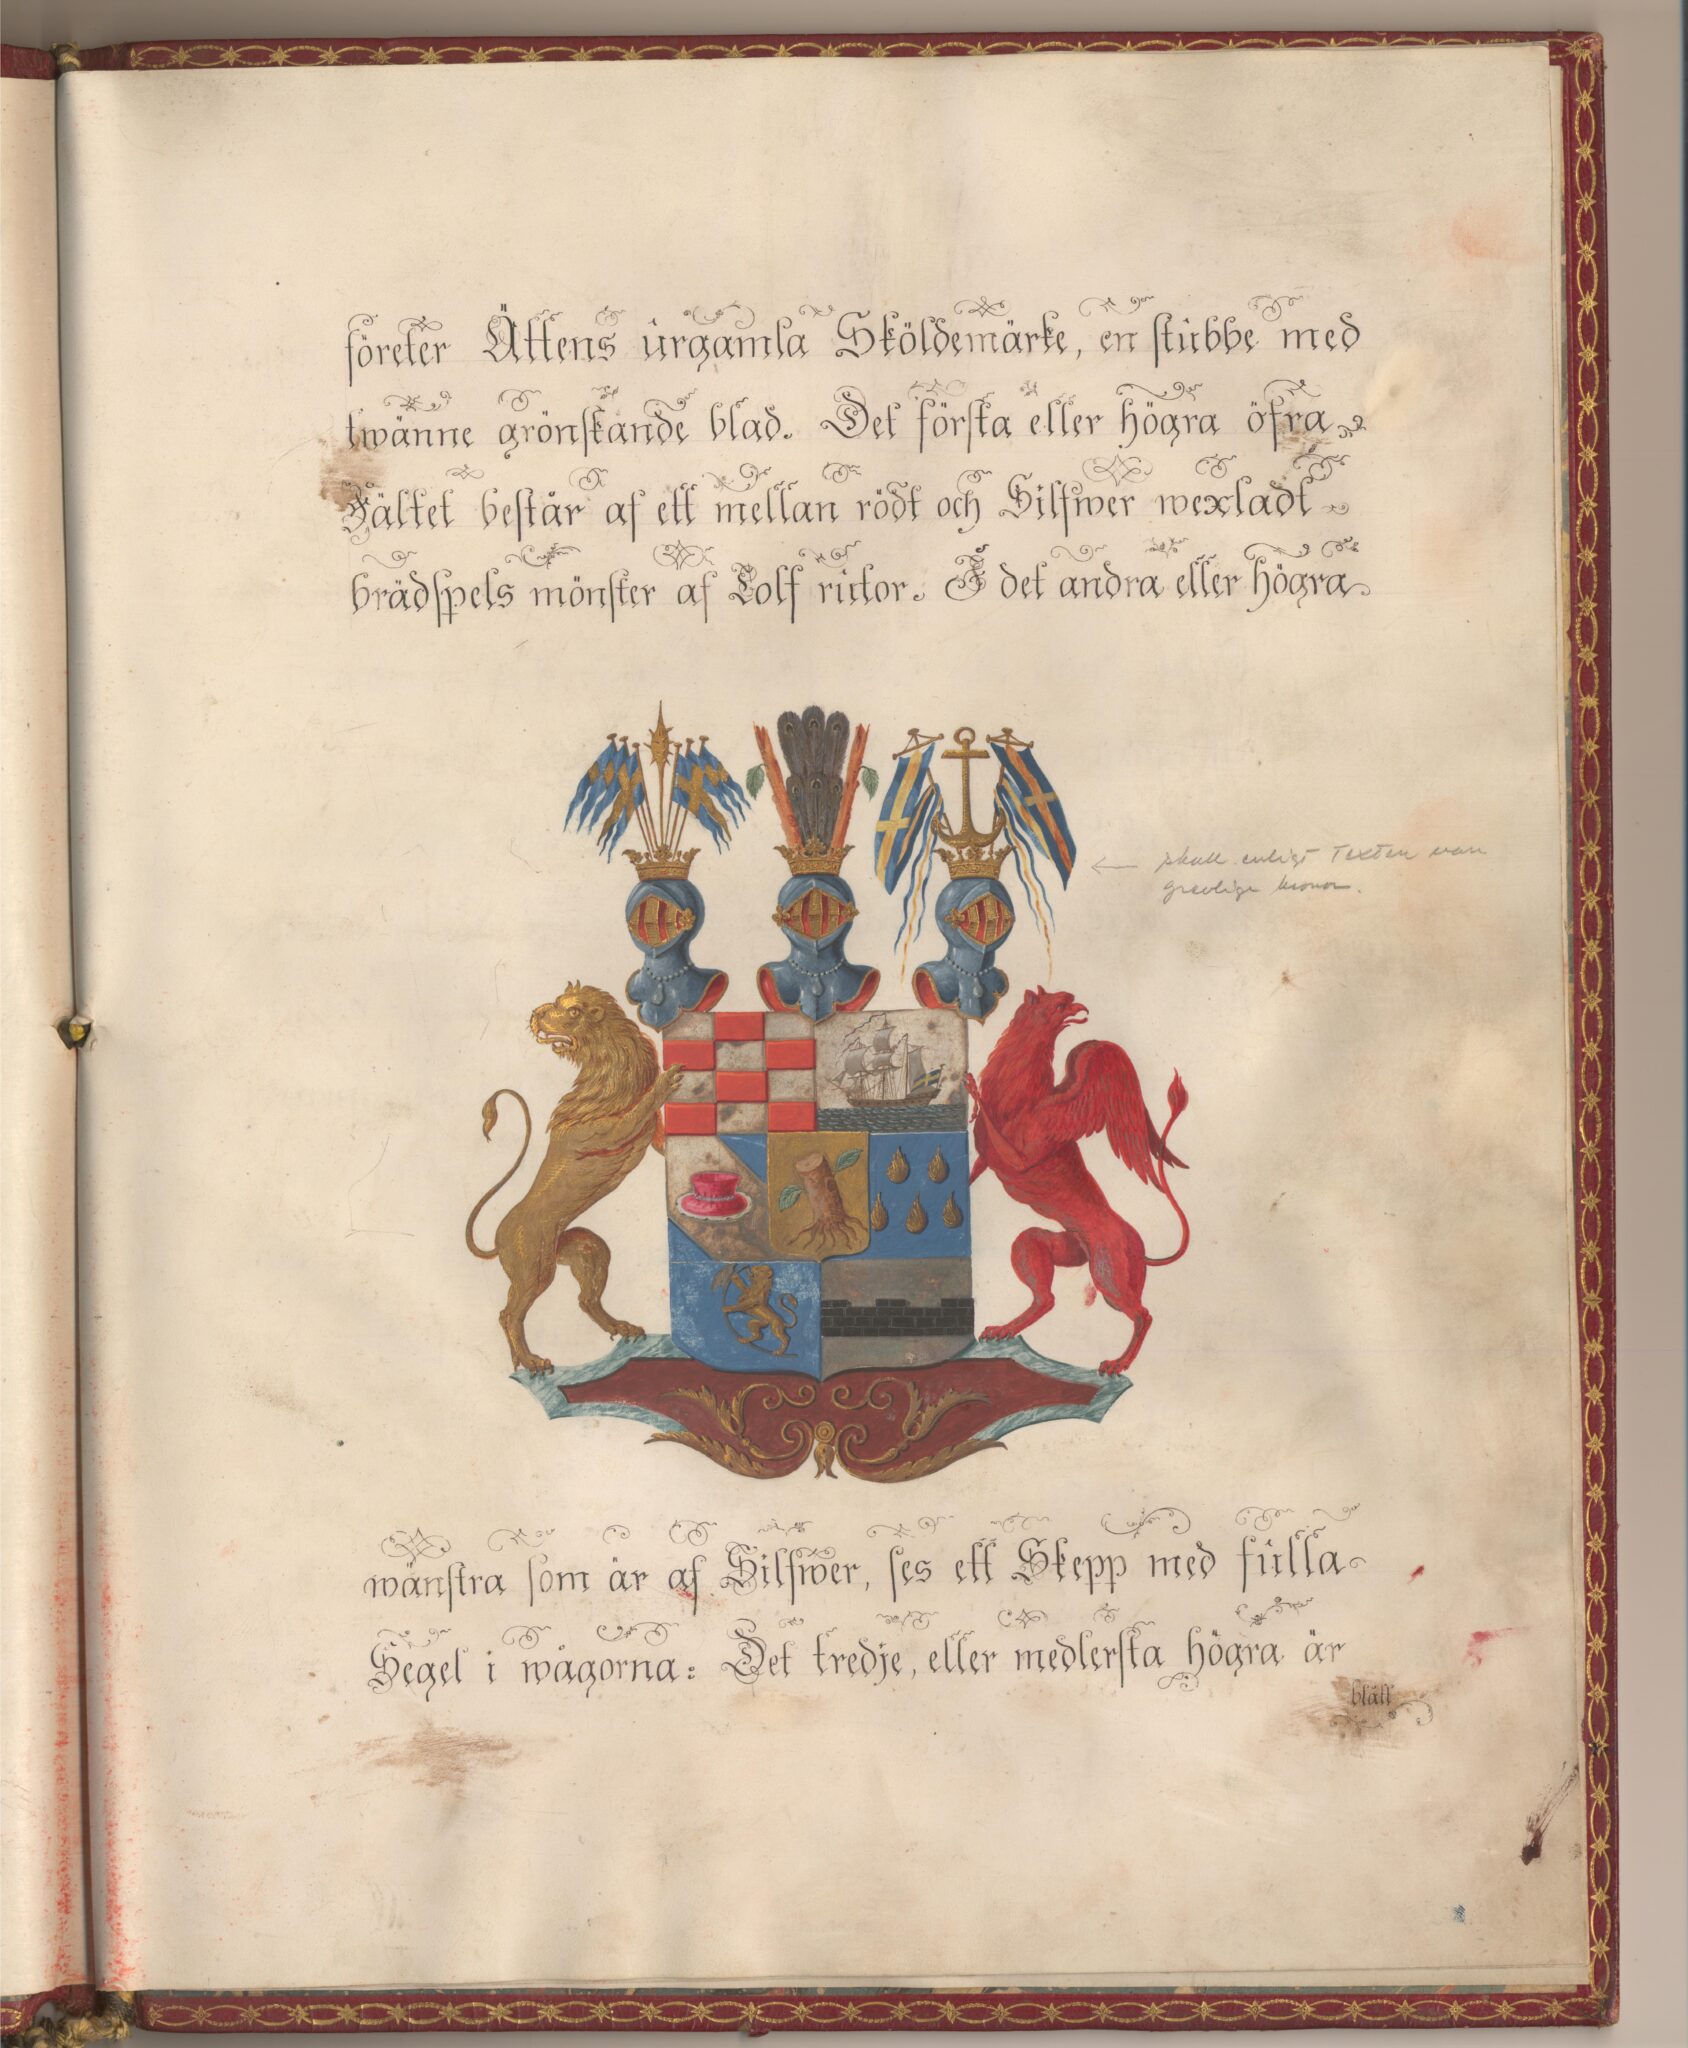 företer Ättens urgamla Sköldemärke, en stubbe med
twänne grönskande blad. Det första eller högra öfra
Fältet består af ett mellan rödt och Silfwer wexladt
brädspels mönster af Tolf rutor. I det andra eller högra
skall enligt Texten vara
grevliga kronor.
wänstra som är af Silfwer, ses ett Skepp med fulla
Segel i wågorna: Det tredje, eller medlersta högra är
blått